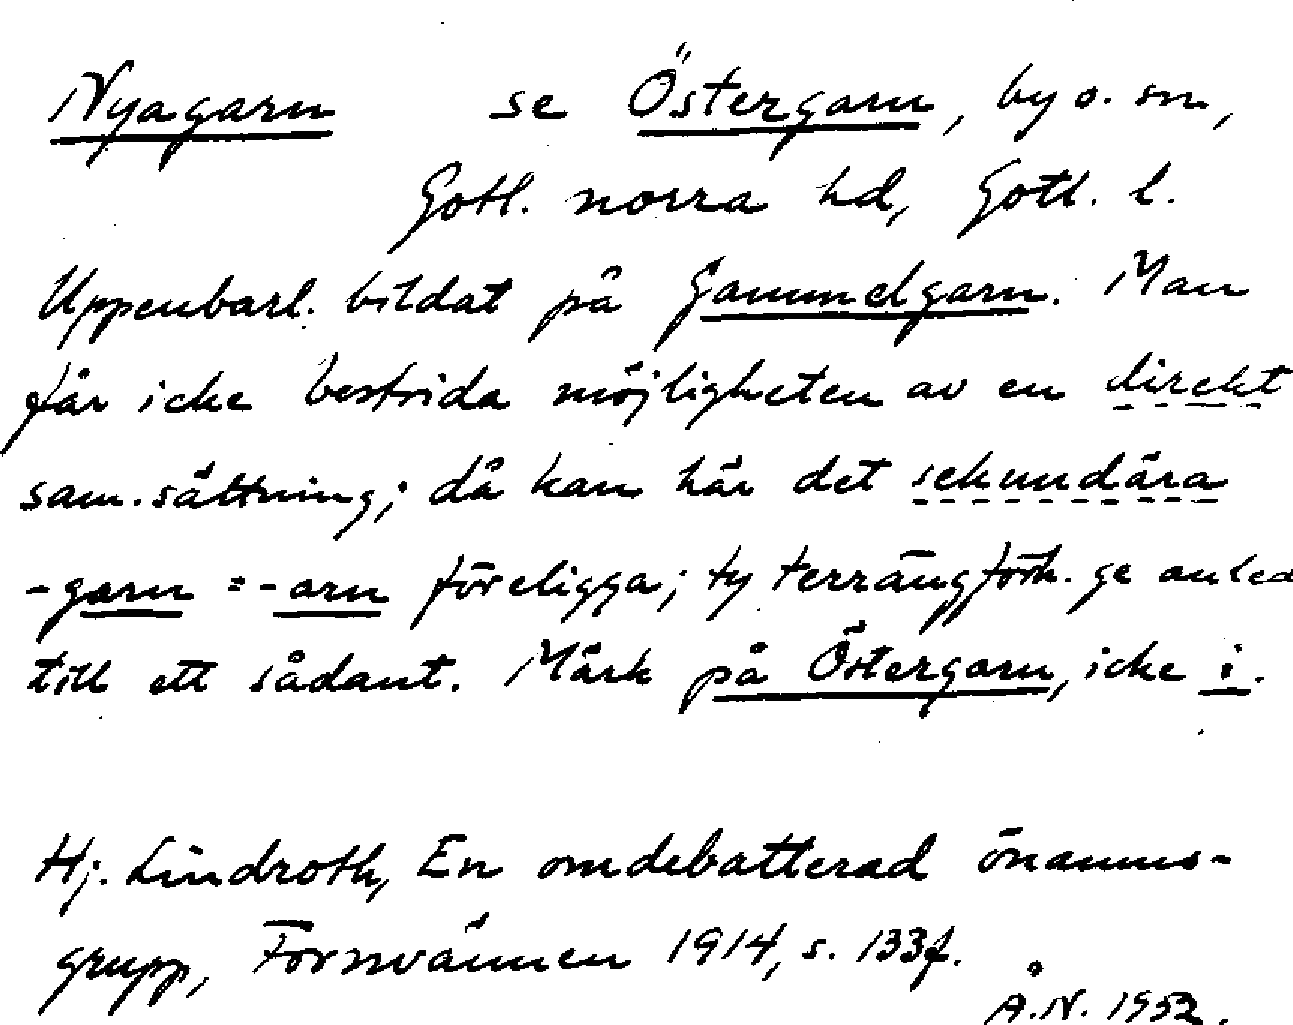 Nyagarn se Östergarn, by o. sn,
Gotl. norra hd, Gotl. l.
Uppenbarl. bildat på Gammelgarn. Man
får icke bestrida möjligheten av en direkt
sam.sättning; då kan här det sekundära
-garn = -arn föreligga; ty terrängförh. ge anled
till ett sådant. Märk på Östergarn, icke i.
Hj. Lindroth, En omdebatterad önamns-
grupp, Fornvännen 1914, s. 133f.
Å.N. 1952.